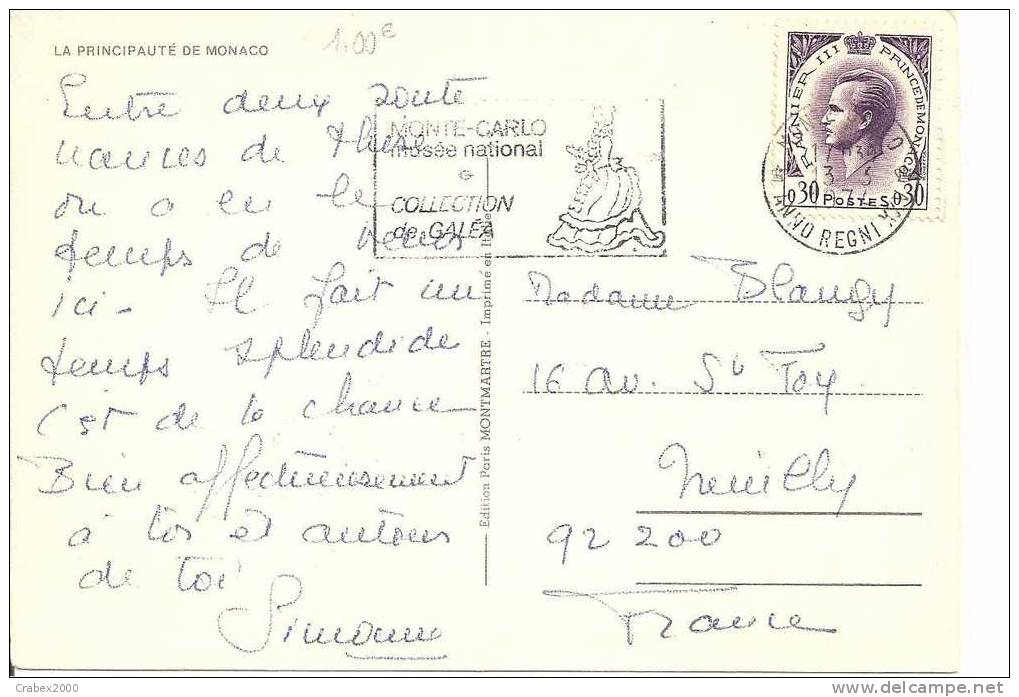 LA PRINCIPAUTÉ DE MONACO
1.00€
Entre deux soute
nances de thèse
on a eu le
temps de venir
ici - Il fait un
temps splendide
C'est de la chance
Bien affectueusement
à toi et autour
de toi
Simone
MONTE-CARLO
musée national
COLLECTION
de GALÉA
RAINIER III PRINCE DE MONACO
0,30 POSTES 0,30
13 5
ANNO REGNI
Edition Paris MONTMARTRE - Imprimé en Italie
Madame Blangy
16 av. Ste Foy
Neuilly
92 200
France
Crabex2000
delcampe.net